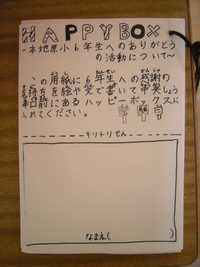 HAPPY BOX
～本地原小6年生へのありがとう
の活動について～
この用紙に6年生への感謝の
を絵や文で書いて
にあるハッピーボックスに
入れてください。
キリトリせん
なまえ(　　　)